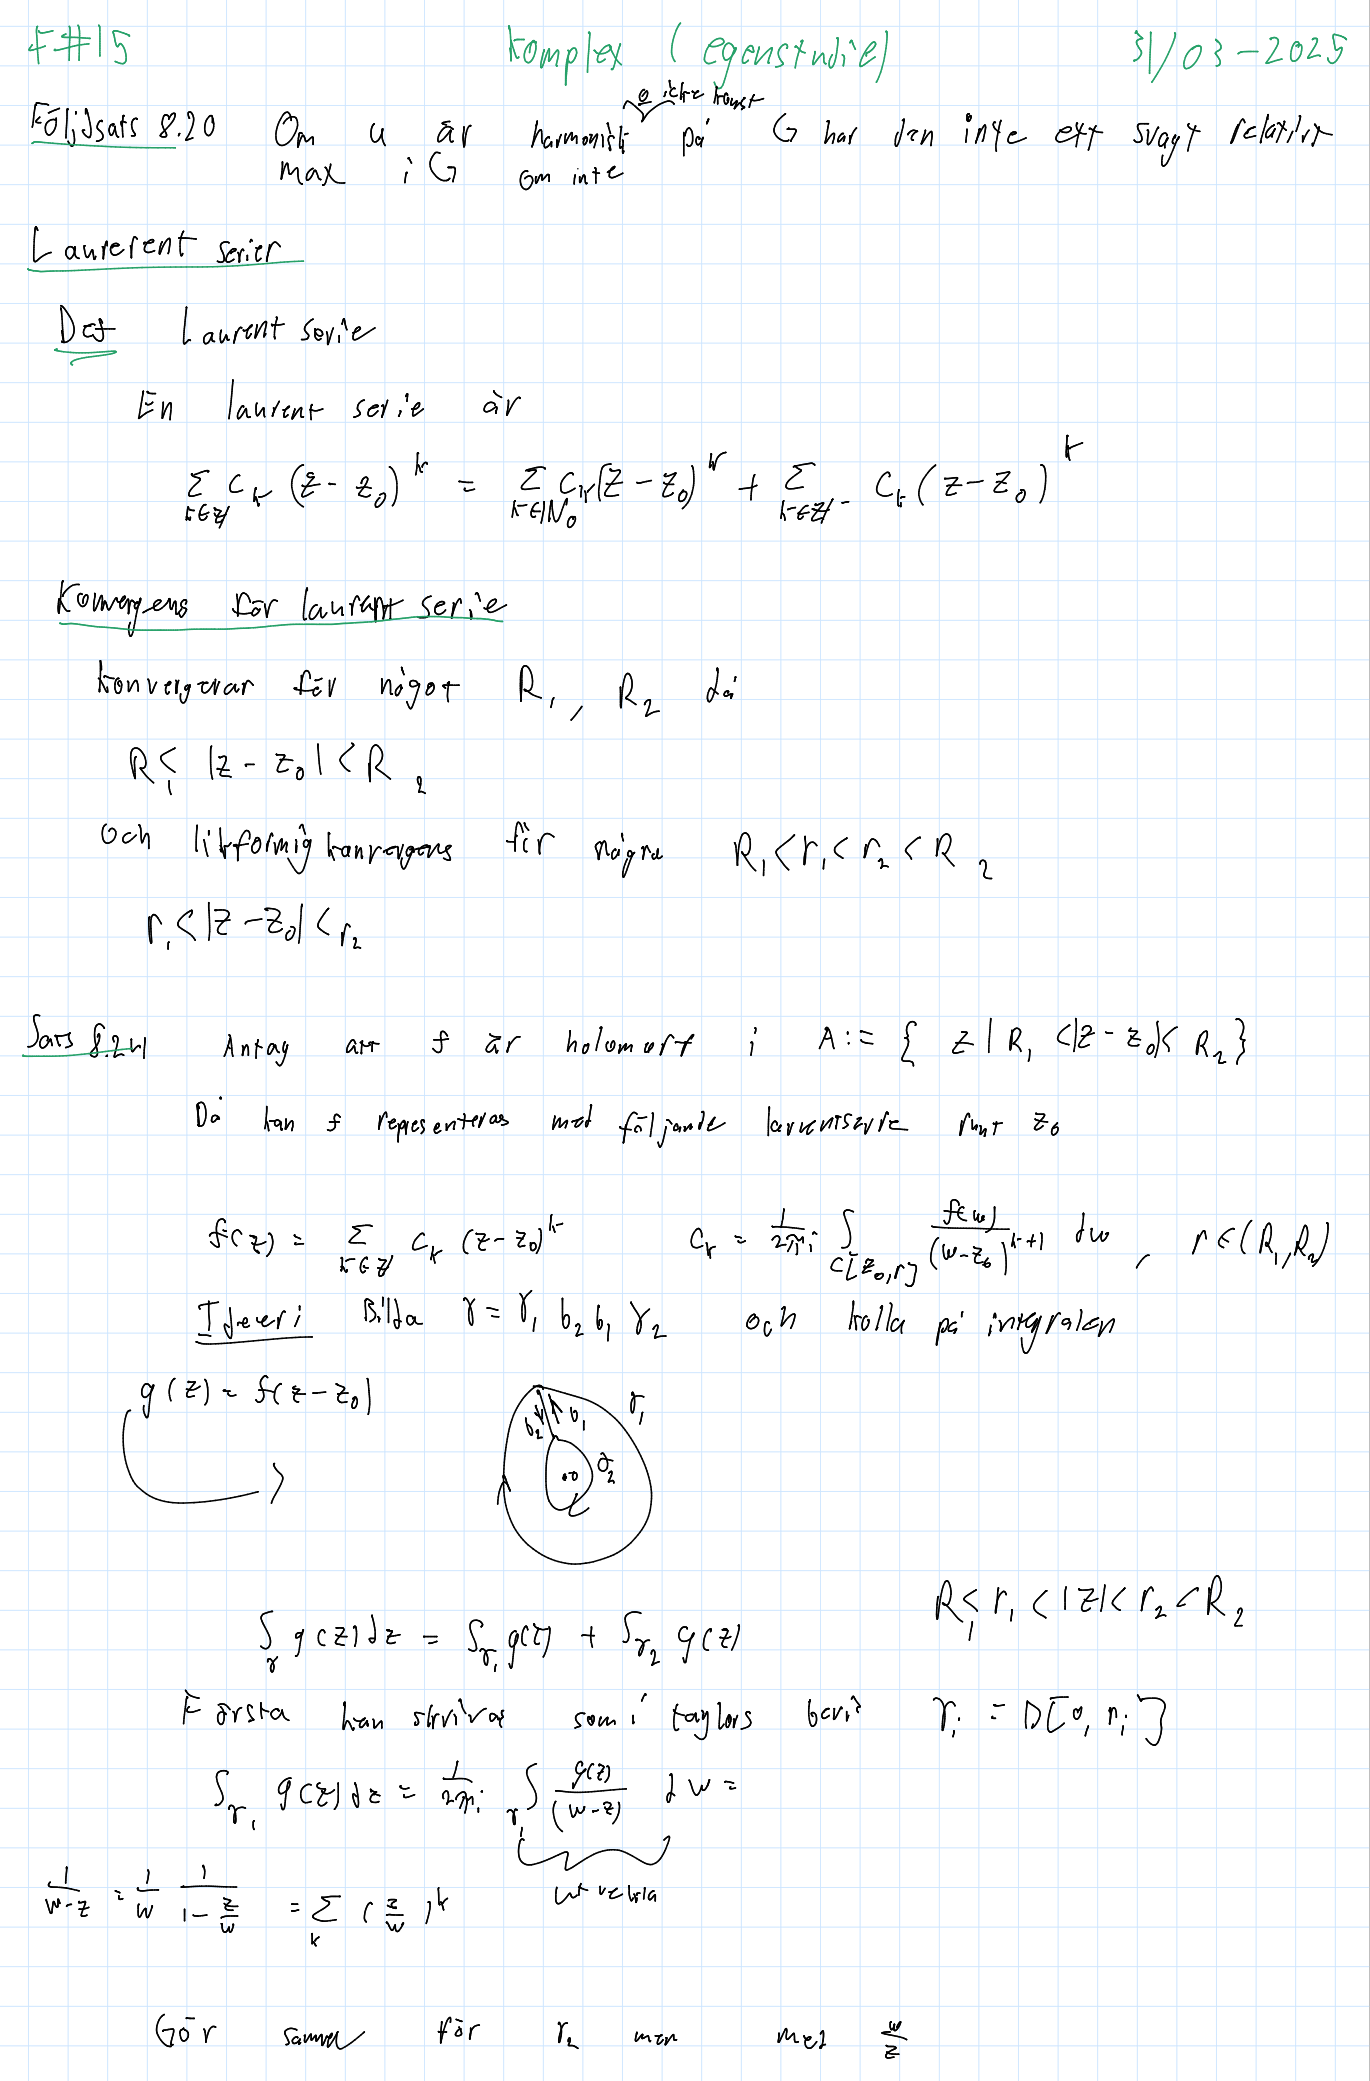 F#15 Komplex (egenstudie) 31/03-2025
o icke konst
Följdsats 8.20 Om u är harmonisk på G har den inte ett svagt relativt
max i G om inte
Laurerent serier
Def Laurent serie
En laurent serie är
Σ_{k∈ℤ} c_k (z-z_0)^k = Σ_{k∈ℕ_0} c_k (z-z_0)^k + Σ_{k∈ℤ^-} c_k (z-z_0)^k
Konvergens för laurent serie
Konvergerar för något R_1, R_2 då
R_1 < |z-z_0| < R_2
och likformig konvergens för några R_1 < r_1 < r_2 < R_2
r_1 < |z-z_0| < r_2
Sats 8.24 Antag att f är holomorf i A := { z | R_1 < |z-z_0| < R_2 }
Då kan f representeras med följande laurentserie runt z_0
f(z) = Σ_{k∈ℤ} c_k (z-z_0)^k c_k = 1/(2πi) ∫_{C[z_0,r]} f(w)/(w-z_0)^{k+1} dw , r∈(R_1,R_2)
Ideer: Bilda γ = γ_1 b_2 b_1 γ_2 och kolla på integralen
g(z) = f(z-z_0)
γ_1
b_2 b_1
γ_2
R_1 < r_1 < |z| < r_2 < R_2
∫_γ g(z)dz = ∫_{γ_1} g(z) + ∫_{γ_2} g(z)
Första kan skrivas som i taylors bevis γ_i = D[0, r_i]
∫_{γ_1} g(z)dz = 1/(2πi) ∫_{γ_1} g(z)/(w-z) dw =
utveckla
1/(w-z) = 1/w 1/(1-z/w) = Σ_k (z/w)^k
Gör samma för γ_2 men med w/z